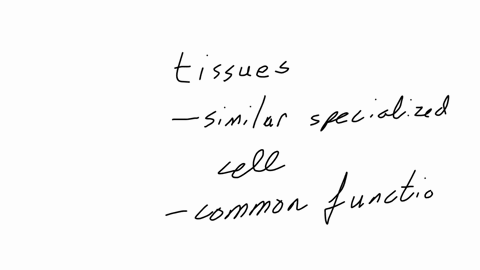 tissues
- similar specialized
cell
- common functio